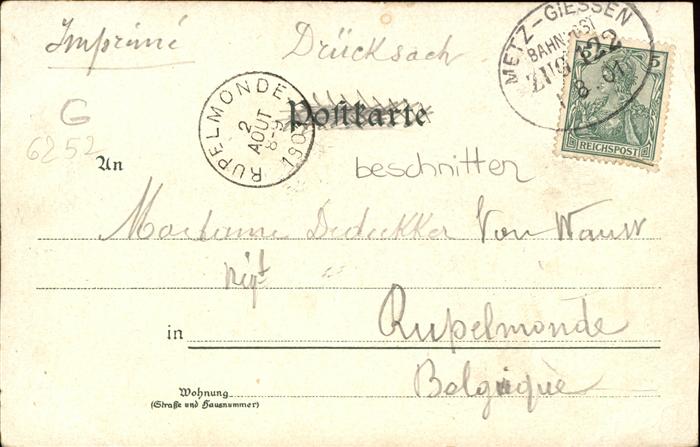 Imprimé
Drücksach
METZ-GIESSEN
BAHNPOST
ZUG 122
8 01
5
REICHSPOST
RUPELMONDE
2
AOUT
8-9
1901
Postkarte
G
6252
beschnitten
An
Madame Dedekker Von
in
Rupelmonde
Belgique
Wohnung
(Straße und Hausnummer)